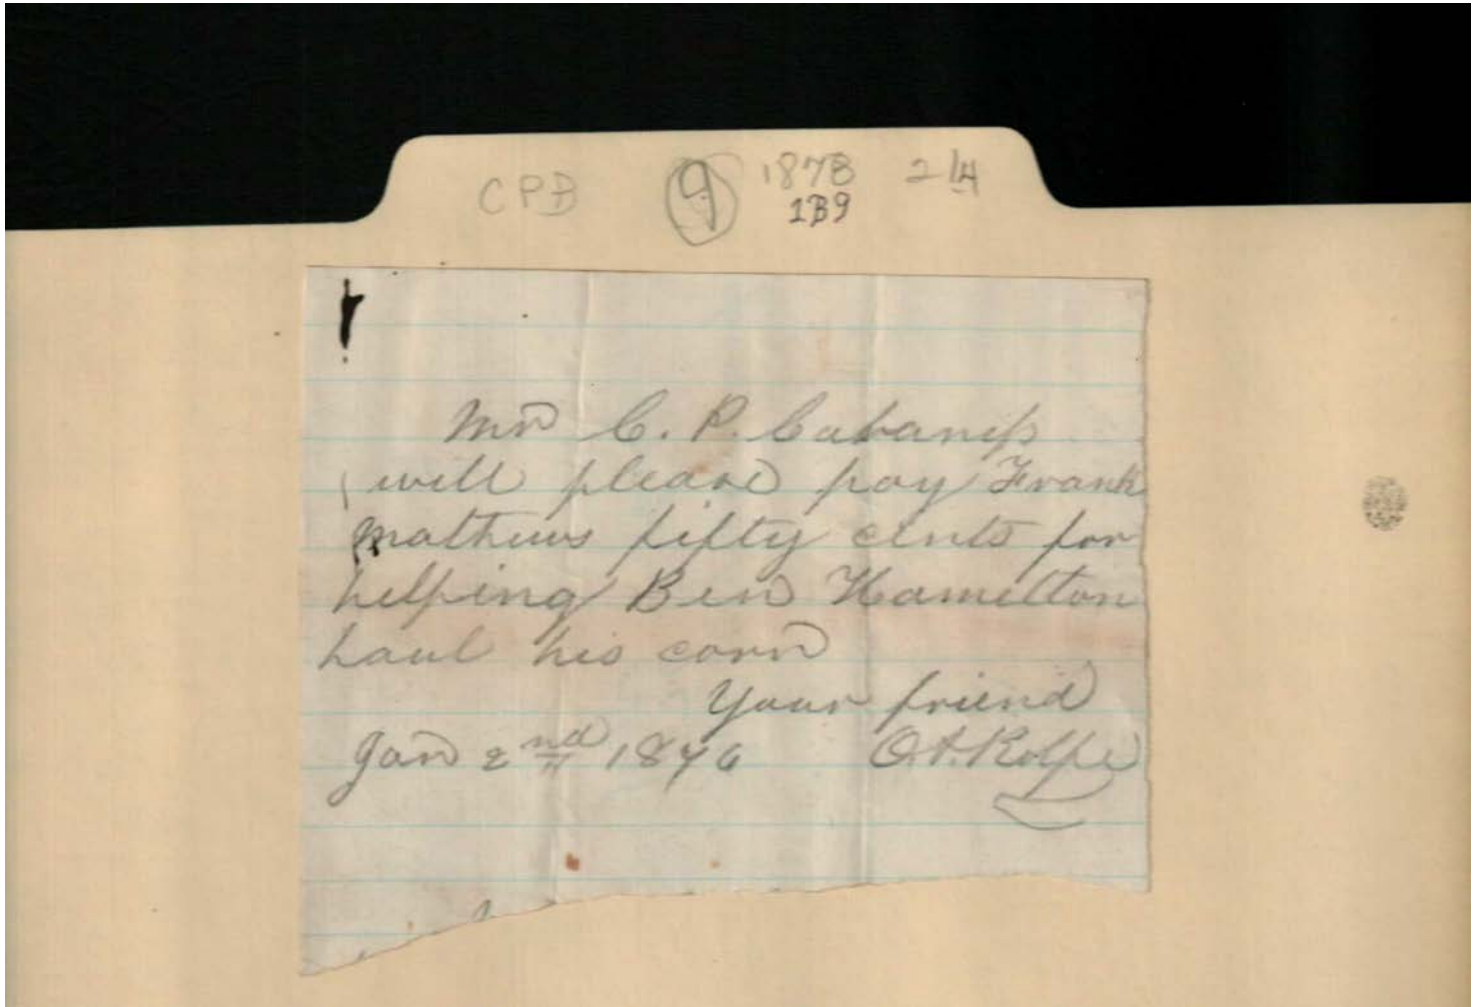 CPB 9 1878 2/4
1B9
Mr C. P. Cabaniss
will please pay Frank
Mathews fifty cents for
helping Ben Hamelton
haul his corn
Your friend
Jan 2nd 1876 O.A. Rolfe